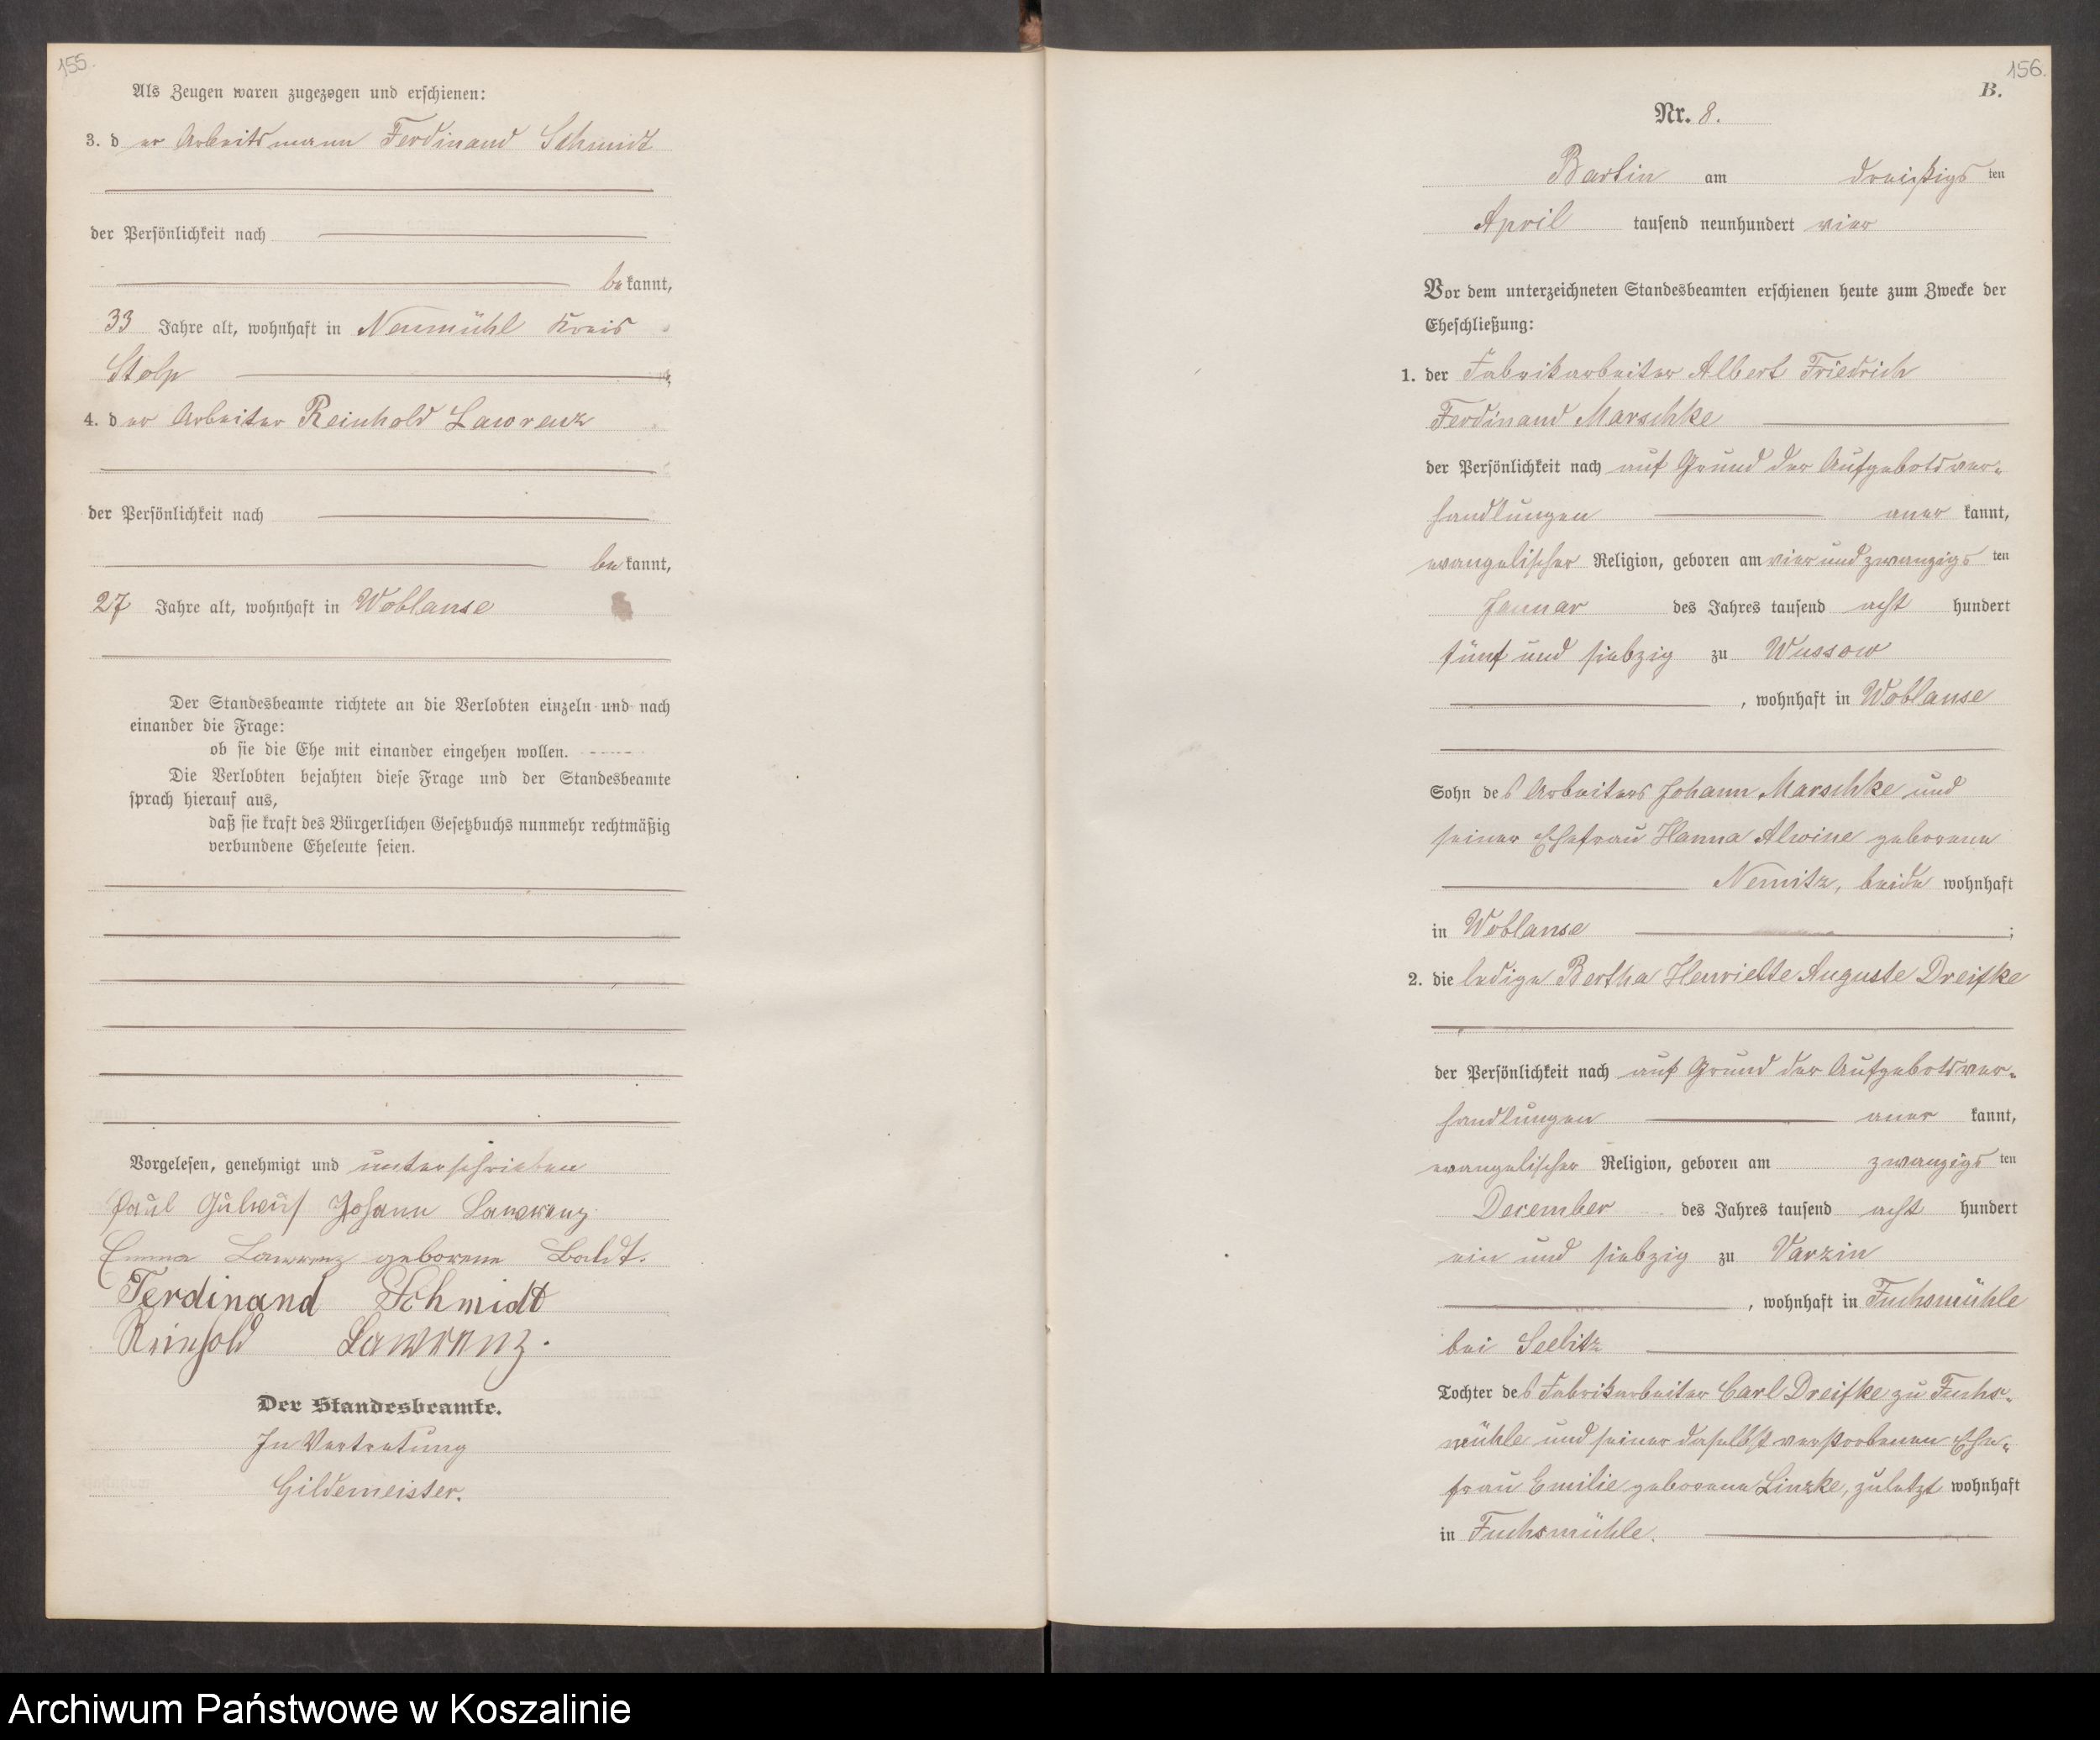 155.
Als Zeugen waren zugezogen und erschienen:
3. d er Arbeitsmann Ferdinand Schmidt
der Persönlichkeit nach
be kannt,
33 Jahre alt, wohnhaft in Neumühl Kreis
Stolp
4. d er Arbeiter Reinhold Lawrenz
der Persönlichkeit nach
be kannt,
27 Jahre alt, wohnhaft in Woblanse
Der Standesbeamte richtete an die Verlobten einzeln und nach
einander die Frage:
ob sie die Ehe mit einander eingehen wollen.
Die Verlobten bejahten diese Frage und der Standesbeamte
sprach hierauf aus,
daß sie kraft des Bürgerlichen Gesetzbuchs nunmehr rechtmäßig
verbundene Eheleute seien.
Vorgelesen, genehmigt und unterschrieben
Paul Johann Lawrenz
Emma Lawrenz geborene
Ferdinand Schmidt
Reinhold Lawrenz.
Der Standesbeamte.
In Vertretung
Gildemeister.
156.
B.
Nr. 8.
Bartin am dreißigs ten
April tausend neunhundert vier
Vor dem unterzeichneten Standesbeamten erschienen heute zum Zwecke der
Eheschließung:
1. der Fabrikarbeiter Albert Friedrich
Ferdinand Marschke
der Persönlichkeit nach auf Grund der Aufgebotsver-
handlungen aner kannt,
evangelischer Religion, geboren am vier und zwanzigs ten
Januar des Jahres tausend acht hundert
fünf und siebzig zu Wussow
, wohnhaft in Woblanse
Sohn des Arbeiters Johann Marschke und
seiner Ehefrau Hanna Alwine geborene
Nemitz, beide wohnhaft
in Woblanse ;
2. die ledige Bertha Henriette Auguste Dreifke
der Persönlichkeit nach auf Grund der Aufgebotsver-
handlungen aner kannt,
evangelischer Religion, geboren am zwanzigs ten
December des Jahres tausend acht hundert
ein und siebzig zu Varzin
, wohnhaft in Fuchsmühle
bei Seelitz
Tochter des Fabrikarbeiter Carl Dreifke zu Fuchs-
mühle und seiner daselbst verstorbenen Ehe-
frau Emilie geborene Linzke, zuletzt wohnhaft
in Fuchsmühle.
Archiwum Państwowe w Koszalinie